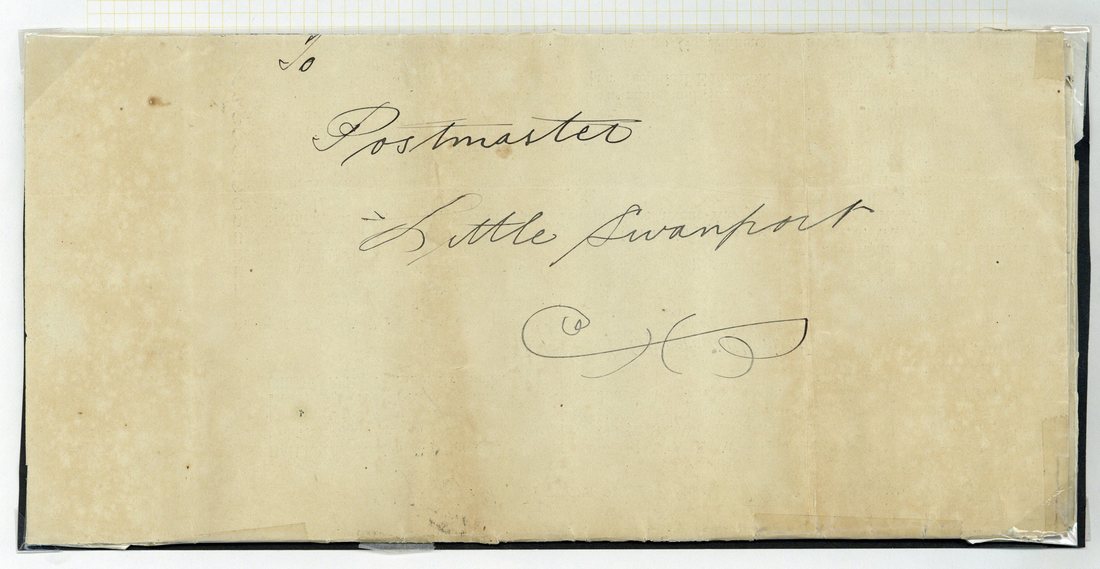 To
Postmaster
Little Swanport